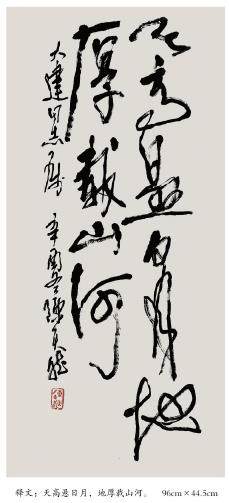 天高悬日月地
厚载山河
大建同志属
辛酉冬陈天然
释文：天高悬日月，地厚载山河。 96cm×44.5cm